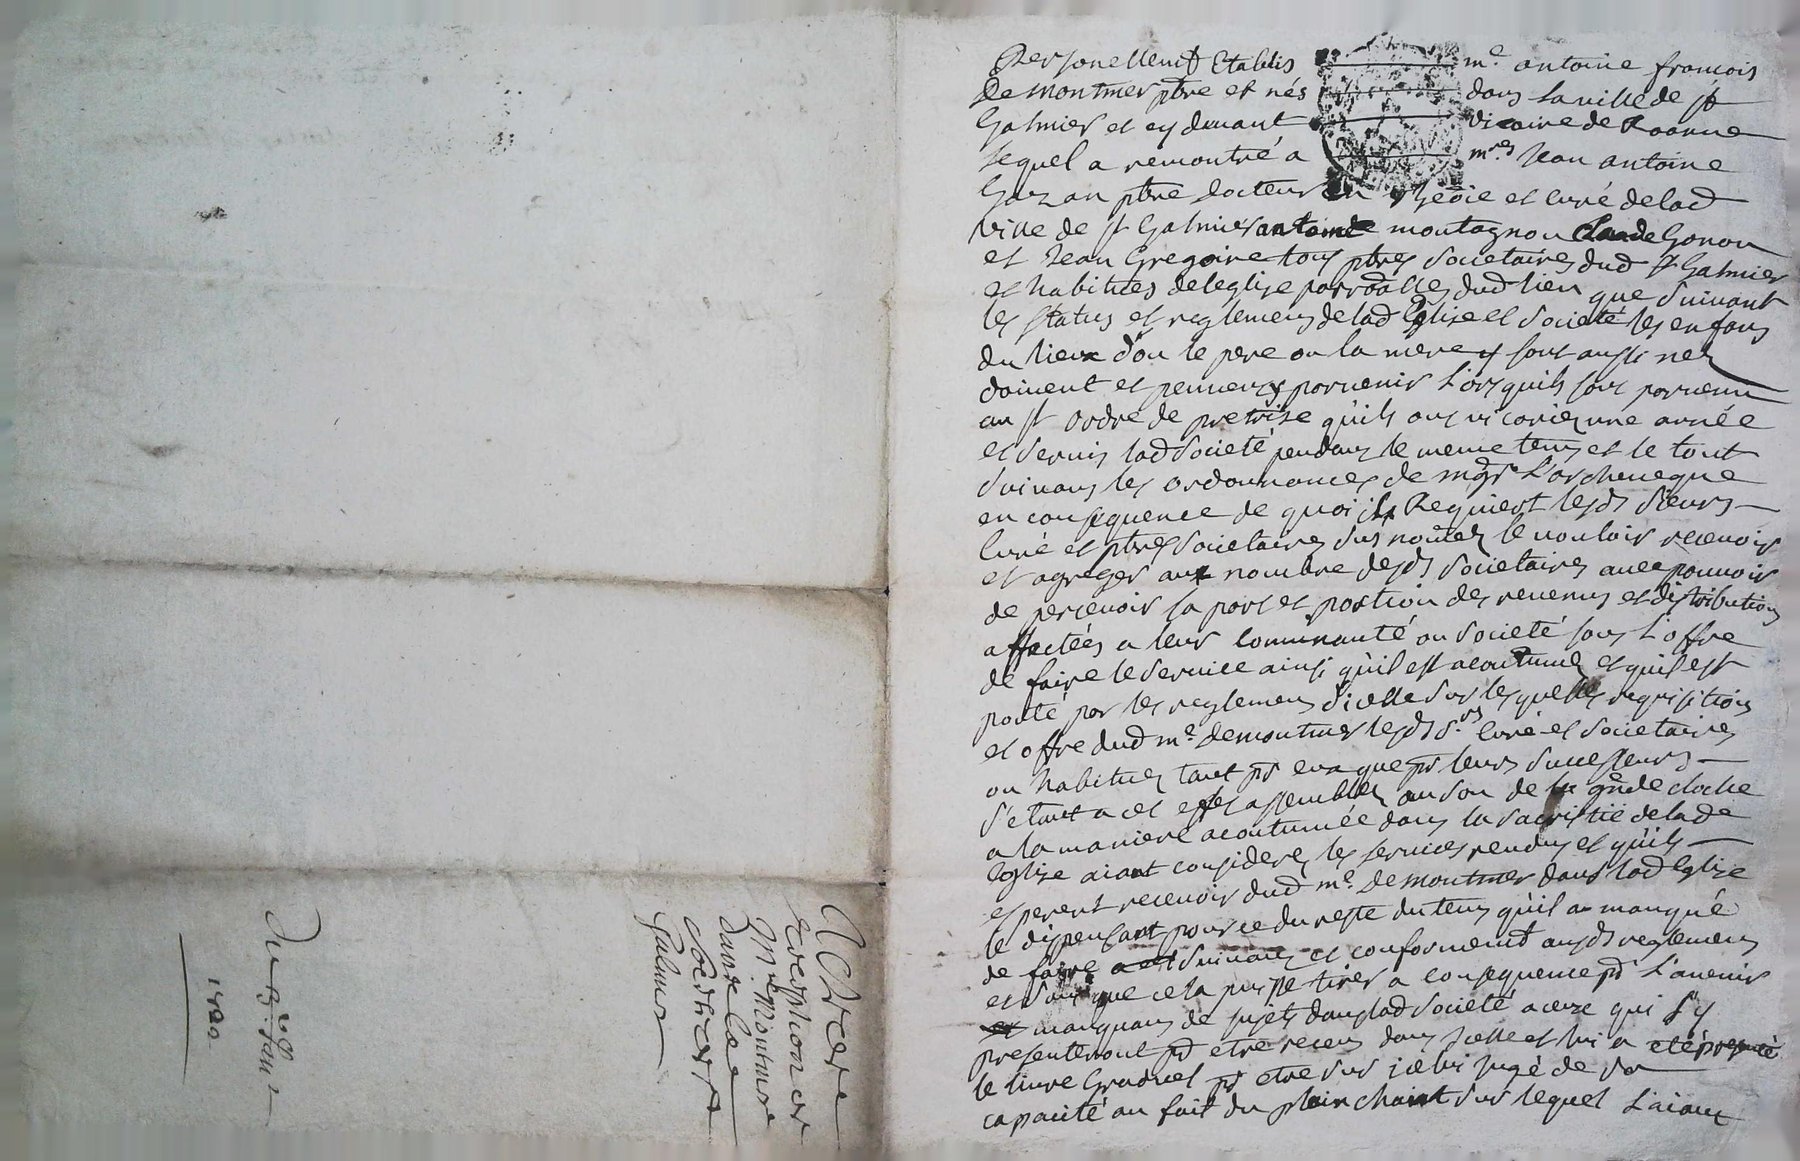 Personellemt Etablis me antoine francois
De montmer ptre et nés dans la ville de st
Galmier et cy devant vicaire de Roanne
lequel a remontré a mres Jean antoine
ptre docteur en et curé de lad
ville de st Galmier antoine montagnon Claude Gonon
et Jean Gregoire tous ptres societaires dud st Galmier
et habitues de leglize dud lieu que suivant
les status et reglemens de lad Eglize et societé les enfans
du lieux d'ou le pere ou la mere y sont aussi nez
doivent et peuvent y parvenir Lorsquils sont parvenu
au st ordre de pretrize quils ont vicariez une année
et servis lad societé pendant le meme tems et le tout
suivans les ordonnances de mgr L'archeveque
en consequence de quoi il Requiert lesds sieurs
Curé et ptres societaires sus nomez le vouloir recevoir
et agreger aux nombre desds societaires avec pouvoir
de percevoir sa part et portion des revenus et distributions
affectées a leur Communauté ou societé sous L'offre
de faire le service ainsi quil est acoutumé et quil est
porté par les reglemens d'icelle sur lesquelles requisitions
et offre dud me Demontmer lesds srs Curé et societaires
ou habituez tant pr eux que pr leurs successeurs
s'etant a cet effet assemblez au son de la grnde cloche
a la maniere acoutumée dans la sacristie de lade
Eglize aiant considerez les services rendus et quils
esperent recevoir dud me De montmer dans lad Eglize
le dispensant pour ce du reste du tems quil a manqué
de faire suivant et conforment auxds reglemens
et sans que cela puisse tirer a consequence pr L'avenir
manquans de sujets dans lad societé a ceux qui s'y
presenteront pr etre receu dans icelle et lui a eté presenté
le livre Graduel pr etre sur icelui jugé de sa
capacité au fait du plain chant sur lequel L'aiant
Acte de
reception de
Mre Montmer
dans la
societé de st
Galmier
Du